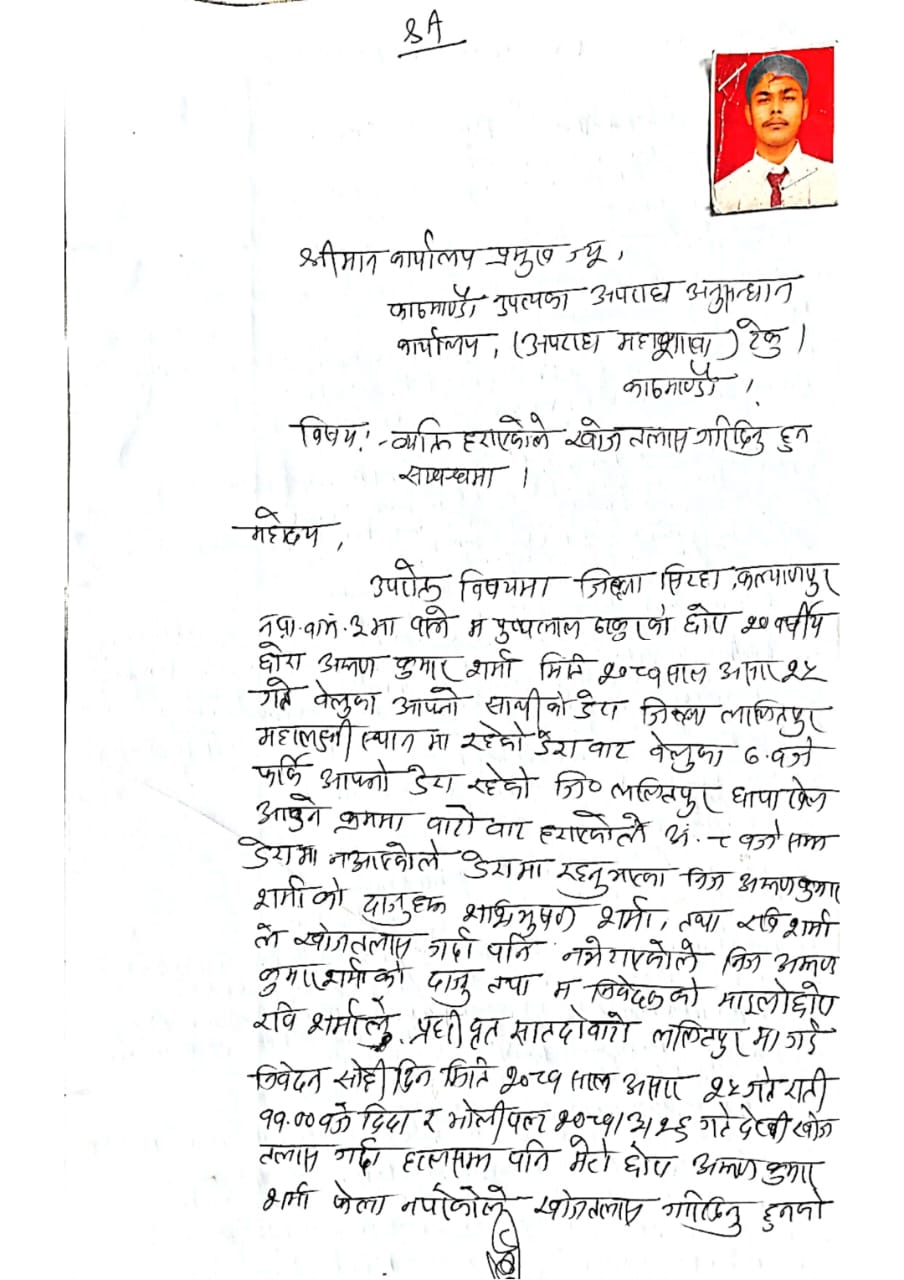 श्रीमान कार्यालय प्रमुख ज्यू,
काठमाण्डौ उपत्यका अपराध अनुसन्धान
कार्यालय, (अपराध महाशाखा) टेकु।
काठमाण्डौ ।
विषय:- व्यक्ति हराएकोले खोजतलास गरिदिनु हुन
सम्बन्धमा ।
महोदय,
उपरोक्त विषयमा जिल्ला सिरहा, कल्याणपुर
न.पा. वा.नं. ३ मा बस्ने म पुष्पलाल ठाकुरको छोरा २० वर्षीय
छोरा अरूण कुमार शर्मा मिति २०८१ साल असार २५
गते बेलुका आफ्नो साथीको डेरा जिल्ला ललितपुर
महालक्ष्मी स्थान मा रहेको डेरा बाट बेलुका ७.बजे
फर्कि आफ्नो डेरा रहेको जि० ललितपुर धापाखेल
आउने क्रममा बाटो बाट हराएकोले अं. ८ बजे सम्म
डेरामा नआएकोले डेरामा रहनुभएका निज अरूणकुमार
शर्माको दाजुहरू शशिभुषण शर्मा, तथा रवि शर्मा
ले खोजतलास गर्दा पनि नभेटाएकोले निज अरूण
कुमार शर्माको दाजु तथा म निवेदकको माइलो छोरा
रवि शर्माले प्रहरी वृत सातदोबाटो ललितपुर मा गई
निवेदन सोही दिन मिति २०८१ साल असार २५ गते राती
११.०० बजे दिदा र भोलीपल्ट २०८१/३/२६ गते देखी खोज
तलास गर्दा हालसम्म पनि मेरो छोरा अरूण कुमार
शर्मा फेला नपरेकोले खोजतलास गरिदिनु हुनको